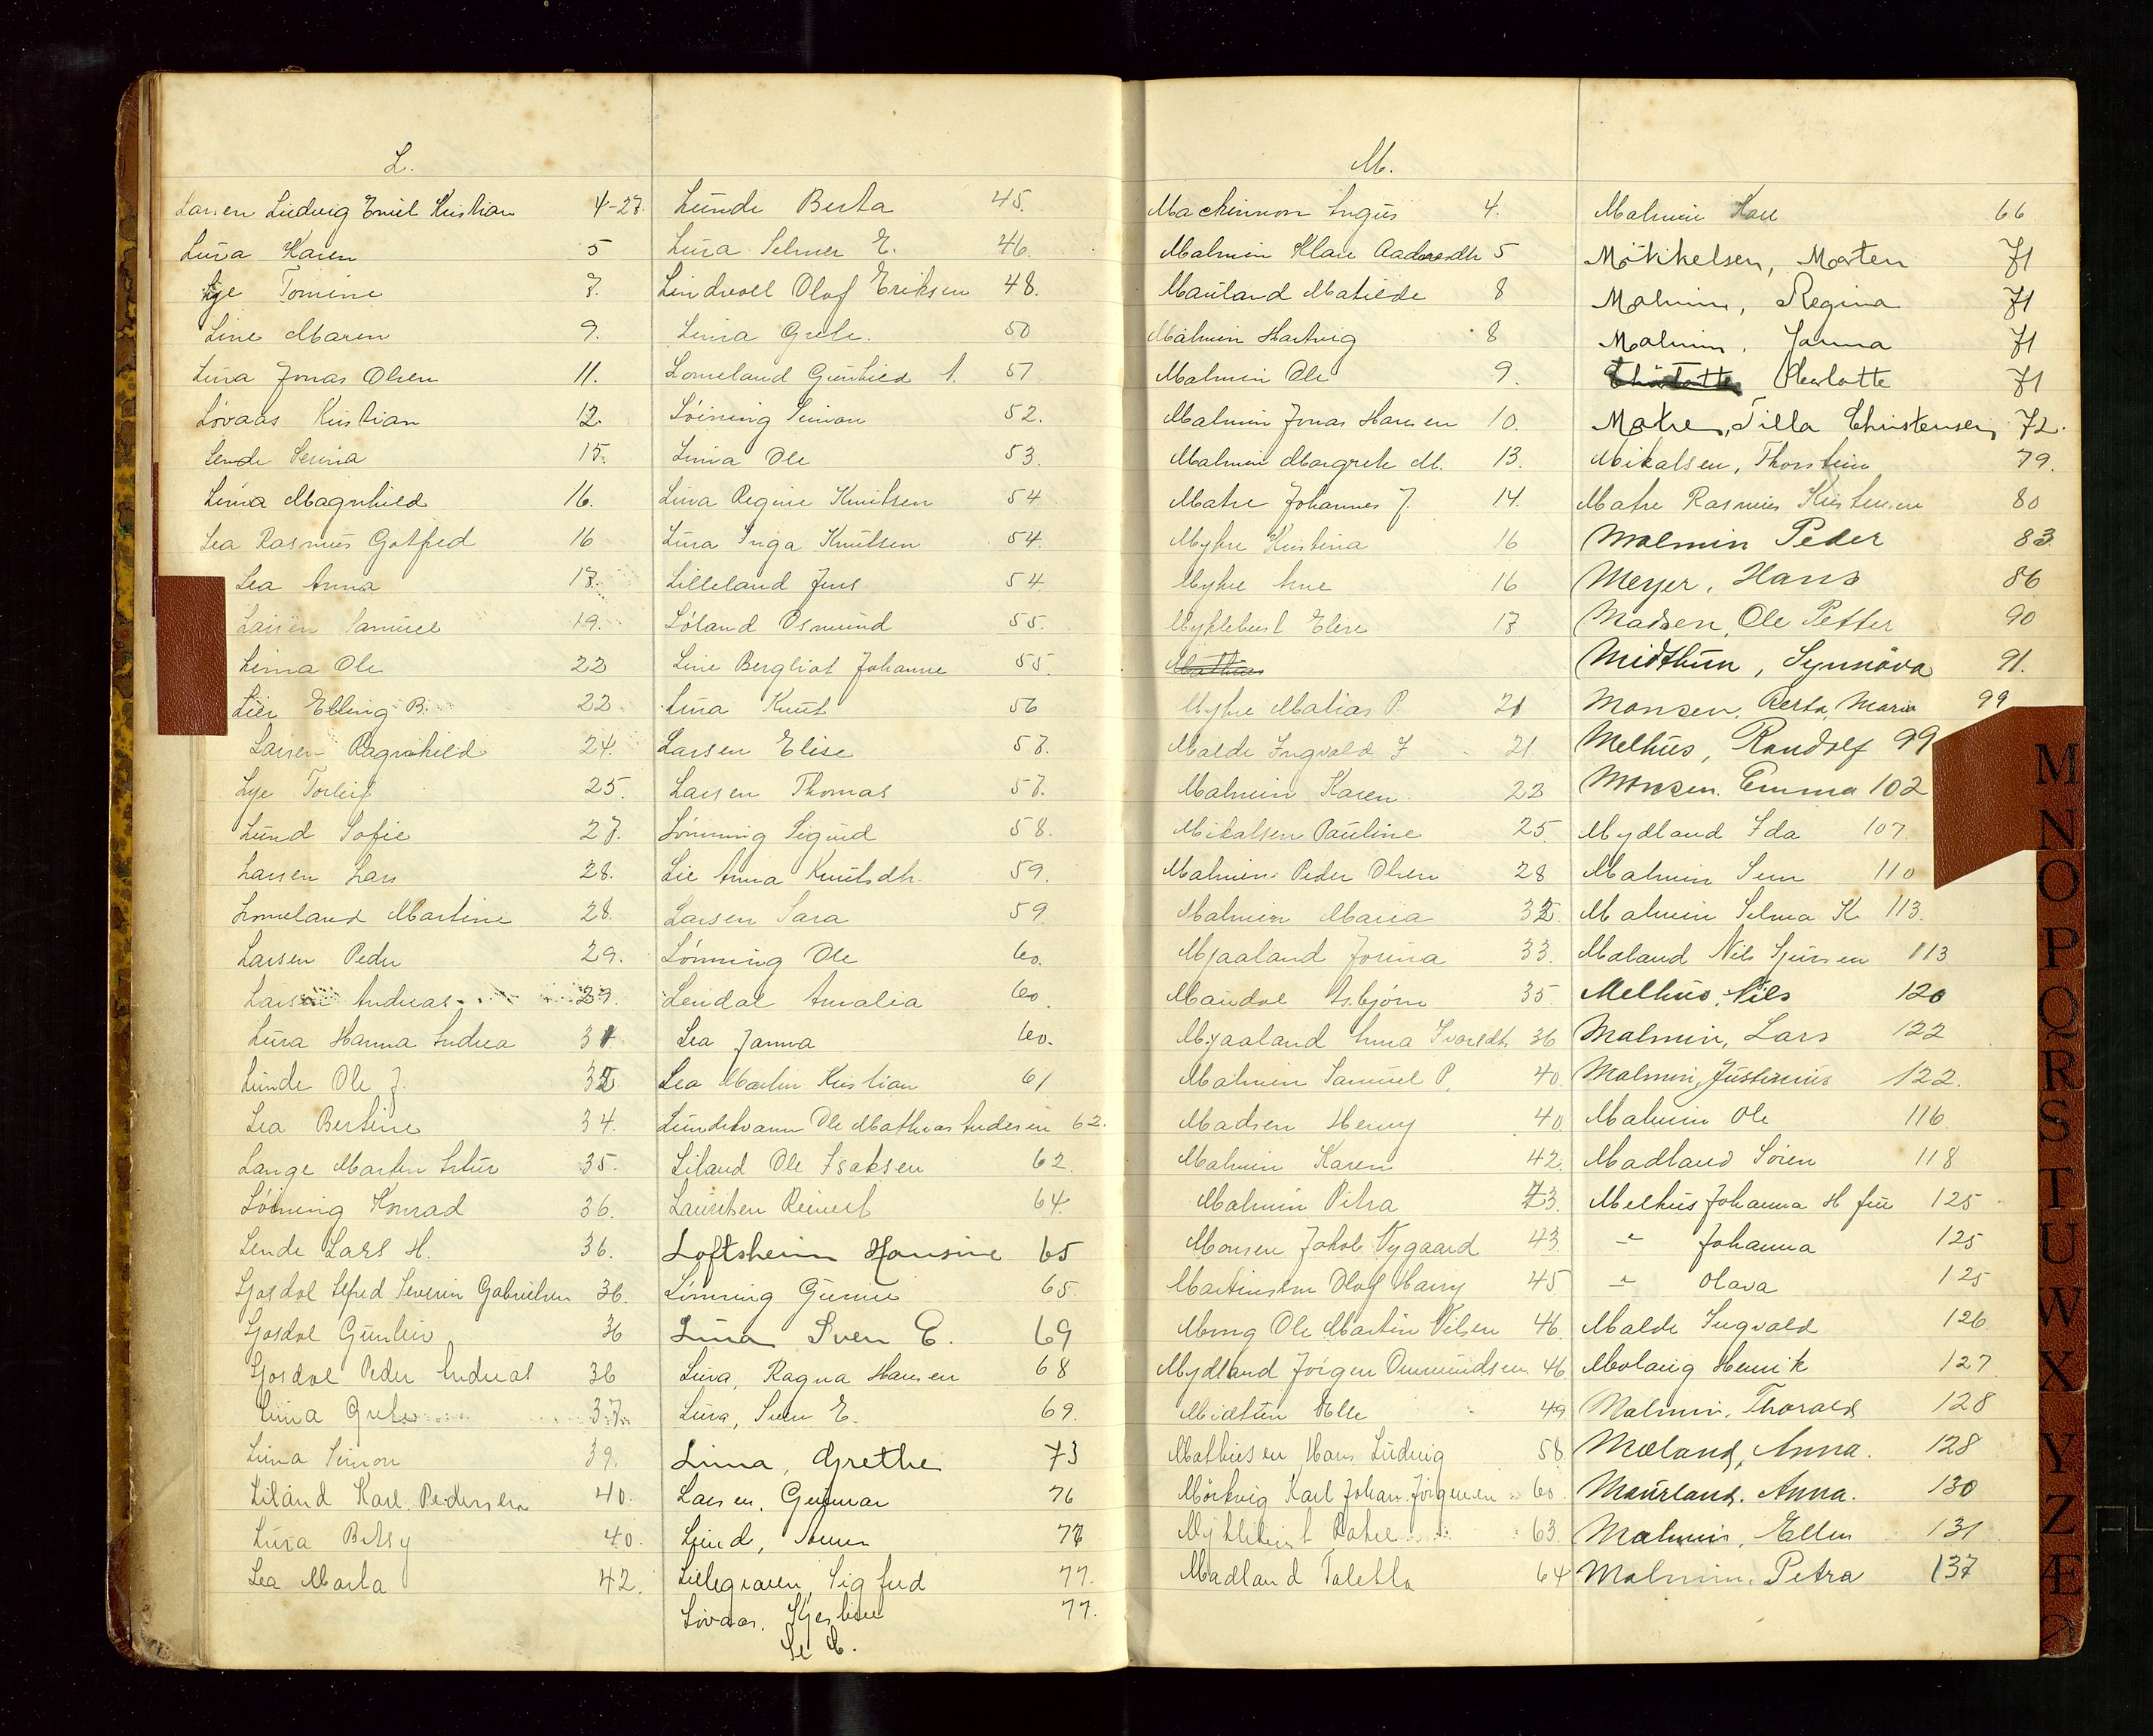 L.
Larsen Ludvig Emil Kristian 4-27.
Lura Karen 5
Lye Tomine 7.
Line Maren 9.
Lura Jonas Olsen 11.
Lövaas Kristian 12.
Lende Serina 15.
Lima Magnhild 16.
Lea Rasmus Gotfred 16
Lea Anna 17.
Larsen Samuel 19.
Lima Ole 22
Lier Elling B. 22
Larsen Ragnhild 24.
Lye Torleif 25.
Lund Sofie 27.
Larsen Lars 28.
Lomeland Martine 28.
Larsen Peder 29.
Larsen Andreas 29.
Lura Hanna Andrea 31
Lunde Ole J. 32
Lea Bertine 34.
Lange Martin Artur 35.
Löining Konrad 36.
Lende Lars H. 36.
Ljosdal Alfred Severin Gabrielsen 36.
Ljosdal Gunleiv 36
Ljosdal Peder Andreas 36
Lima Grete 37.
Lima Simon 39.
Liland Karl Pedersen 40.
Lura Betsy 40.
Lea Marta 42.
Lunde Berta 45.
Lura Selmer E. 46.
Lindvoll Olaf Eriksen 48.
Lima Grete. 50
Lomeland Gunhild A. 51
Löining Simon 52.
Lima Ole 53.
Lura Regine Knutsen 54
Lura Inga Knutsen 54.
Lilleland Jens 54.
Löland Osmund 55.
Line Bergliot Johanne 55.
Lura Knut 56
Larsen Elise 57.
Larsen Thomas 57.
Lönning Sigurd 58.
Lie Anna Knutsdtr. 59.
Larsen Sara 59.
Lönning Ole 60.
Lendal Amalia 60.
Lea Janna 60.
Lea Martin Kristian 61
Lundetvann Ole Mathias Andersen 62.
Liland Ole Isaksen 62.
Lauritsen Reinert 64.
Loftsheim Hansine 65
Lönning Gunnie 65.
Lura Sven E. 69
Lura, Ragna Hansen 68
Lura, Sven E. 69.
Lima, Grethe 73
Larsen, Gunnar 76
Lund, 77
Lillegraven, Sigfred 77.
Lövaas, Kjerstine 77.
Se C.
M.
Mackinnon Angus 4.
Malmin Klare Aadnesdtr 5
Mauland Matilde 8
Malmin Hartvig 8
Malmin Ole 9.
Malmin Jonas Hansen 10.
Malmin Margrete M. 13.
Matre Johannes J. 14.
Mykre Kristina 16
Mykre Arne 16
Myklebust Elise 17
Mykre Matias P. 21
Malde Ingvald J 21.
Malmin Karen 22
Mikalsen Pauline 25.
Malmin Peder Olsen 28
Malmin Maria 32.
Mjaaland Jorina 33.
Maudal Asbjörn 35.
Mjaaland Anna Ivarsdtr. 36
Malmin Samuel P. 40.
Madsen Henny 40
Malmin Karen 42.
Malmin Petra 43.
Monsen Jakob Nygaard 43.
Martinsen Olaf Harry 45.
Mong Ole Martin Nilsen 46.
Mydland Jörgen Ommundsen. 46.
Midtun Elle 49
Mathiesen Hans Ludvig 58.
Mörkvig Karl Johan Jörgensen 60.
Myklebust Rakel 63.
Madland Taletta 64
Malmin Karl 66
Mikkelsen, Morten 71
Malmin, Regina 71
Malmin, Janna 71
Charlotte 71
Matre, Tilla Christensen 72.
Mikalsen, Thorstein 79.
Matre Rasmus Kristensen 80
Malmin Peder 83.
Meyer, Hans 86
Madsen, Ole Petter 90
Midthun, Synnöva 91.
Monsen, Berta Maria 99
Melhus, Randolf 99
Monsen. Emma 102
Mydland Ida 107.
Malmin Sem 110
Malmin Selma K. 113.
Maland Nils Sjursen 113
Melhus, Nils 120
Malmin, Lars 122
Malmin, Justinius 122.
Malmin Ole 116.
Madland Sören 118
Melhus Johanna H fru 125
" Johanna 125
" Olava 125
Malde Ingvald 126.
Molaug Henrik 127
Malmin, Thorald 128
Mæland, Anna. 128
Maurland. Anna. 130
Malmin, Ellen 131
Malmin, Petra 137
M
N
O
P
Q
R
S
T
U
W
X
Y
Z
Æ